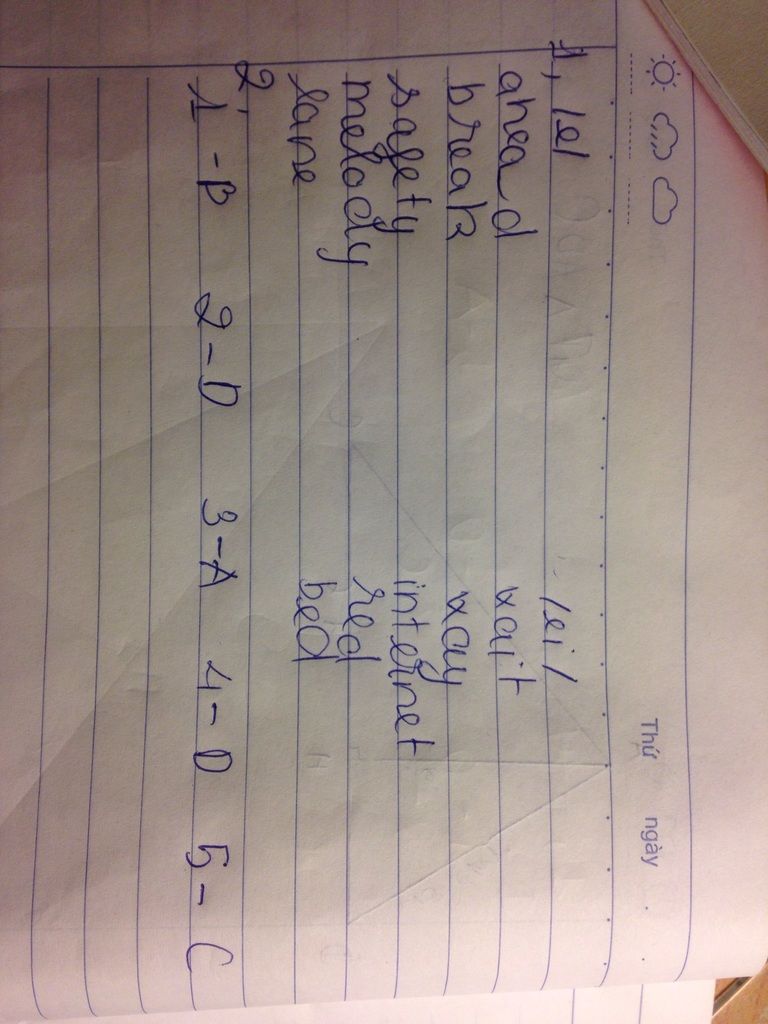 Thứ ngày
1, /e/ /ei/
ahead wait
break way
safety internet
melody red
lane bed
2,
1-B 2-D 3-A 4-D 5-C